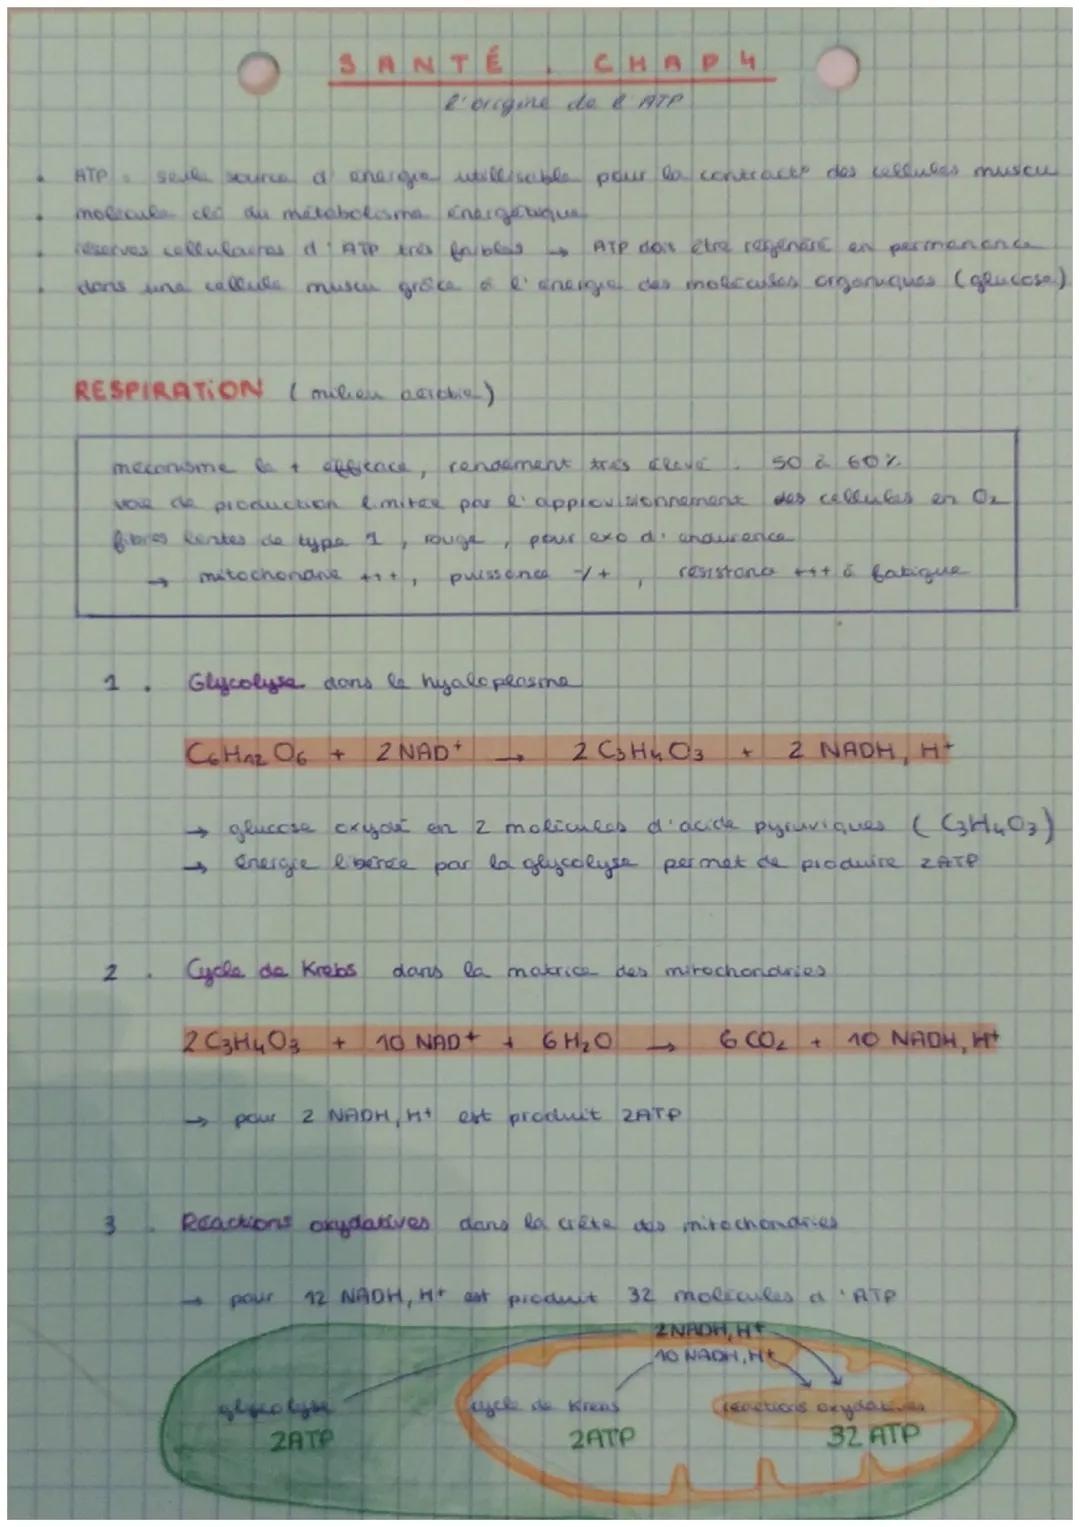 SANTÉ . CHAP 4
l'origine de l'ATP
• ATP = seule source d'énergie utilisable pour la contract° des cellules muscu
• molécule clé du métabolisme énergétique
• réserves cellulaires d'ATP très faibles → ATP doit être régénéré en permanence
• dans une cellule muscu grâce à l'énergie des molécules organiques (glucose)
RESPIRATION (milieu aérobie)
mécanisme le + efficace, rendement très élevé : 50 à 60%
voie de production limitée par l'approvisionnement des cellules en O2
fibres lentes de type 1, rouge, pour exo d'endurance
→ mitochondrie +++, puissance -/+, résistance +++ à fatigue
1. Glycolyse dans le hyaloplasme
C6H12O6 + 2 NAD+ → 2 C3H4O3 + 2 NADH, H+
→ glucose oxydé en 2 molécules d'acide pyruviques (C3H4O3)
→ énergie libérée par la glycolyse permet de produire 2ATP
2. Cycle de Krebs dans la matrice des mitochondries
2 C3H4O3 + 10 NAD+ + 6 H2O → 6 CO2 + 10 NADH, H+
→ pour 2 NADH, H+ est produit 2ATP
3. Réactions oxydatives dans la crête des mitochondries
→ pour 12 NADH, H+ est produit 32 molécules d'ATP
2NADH, H+
10 NADH, H+
glycolyse cycle de Krebs réactions oxydatives
2ATP 2ATP 32 ATP